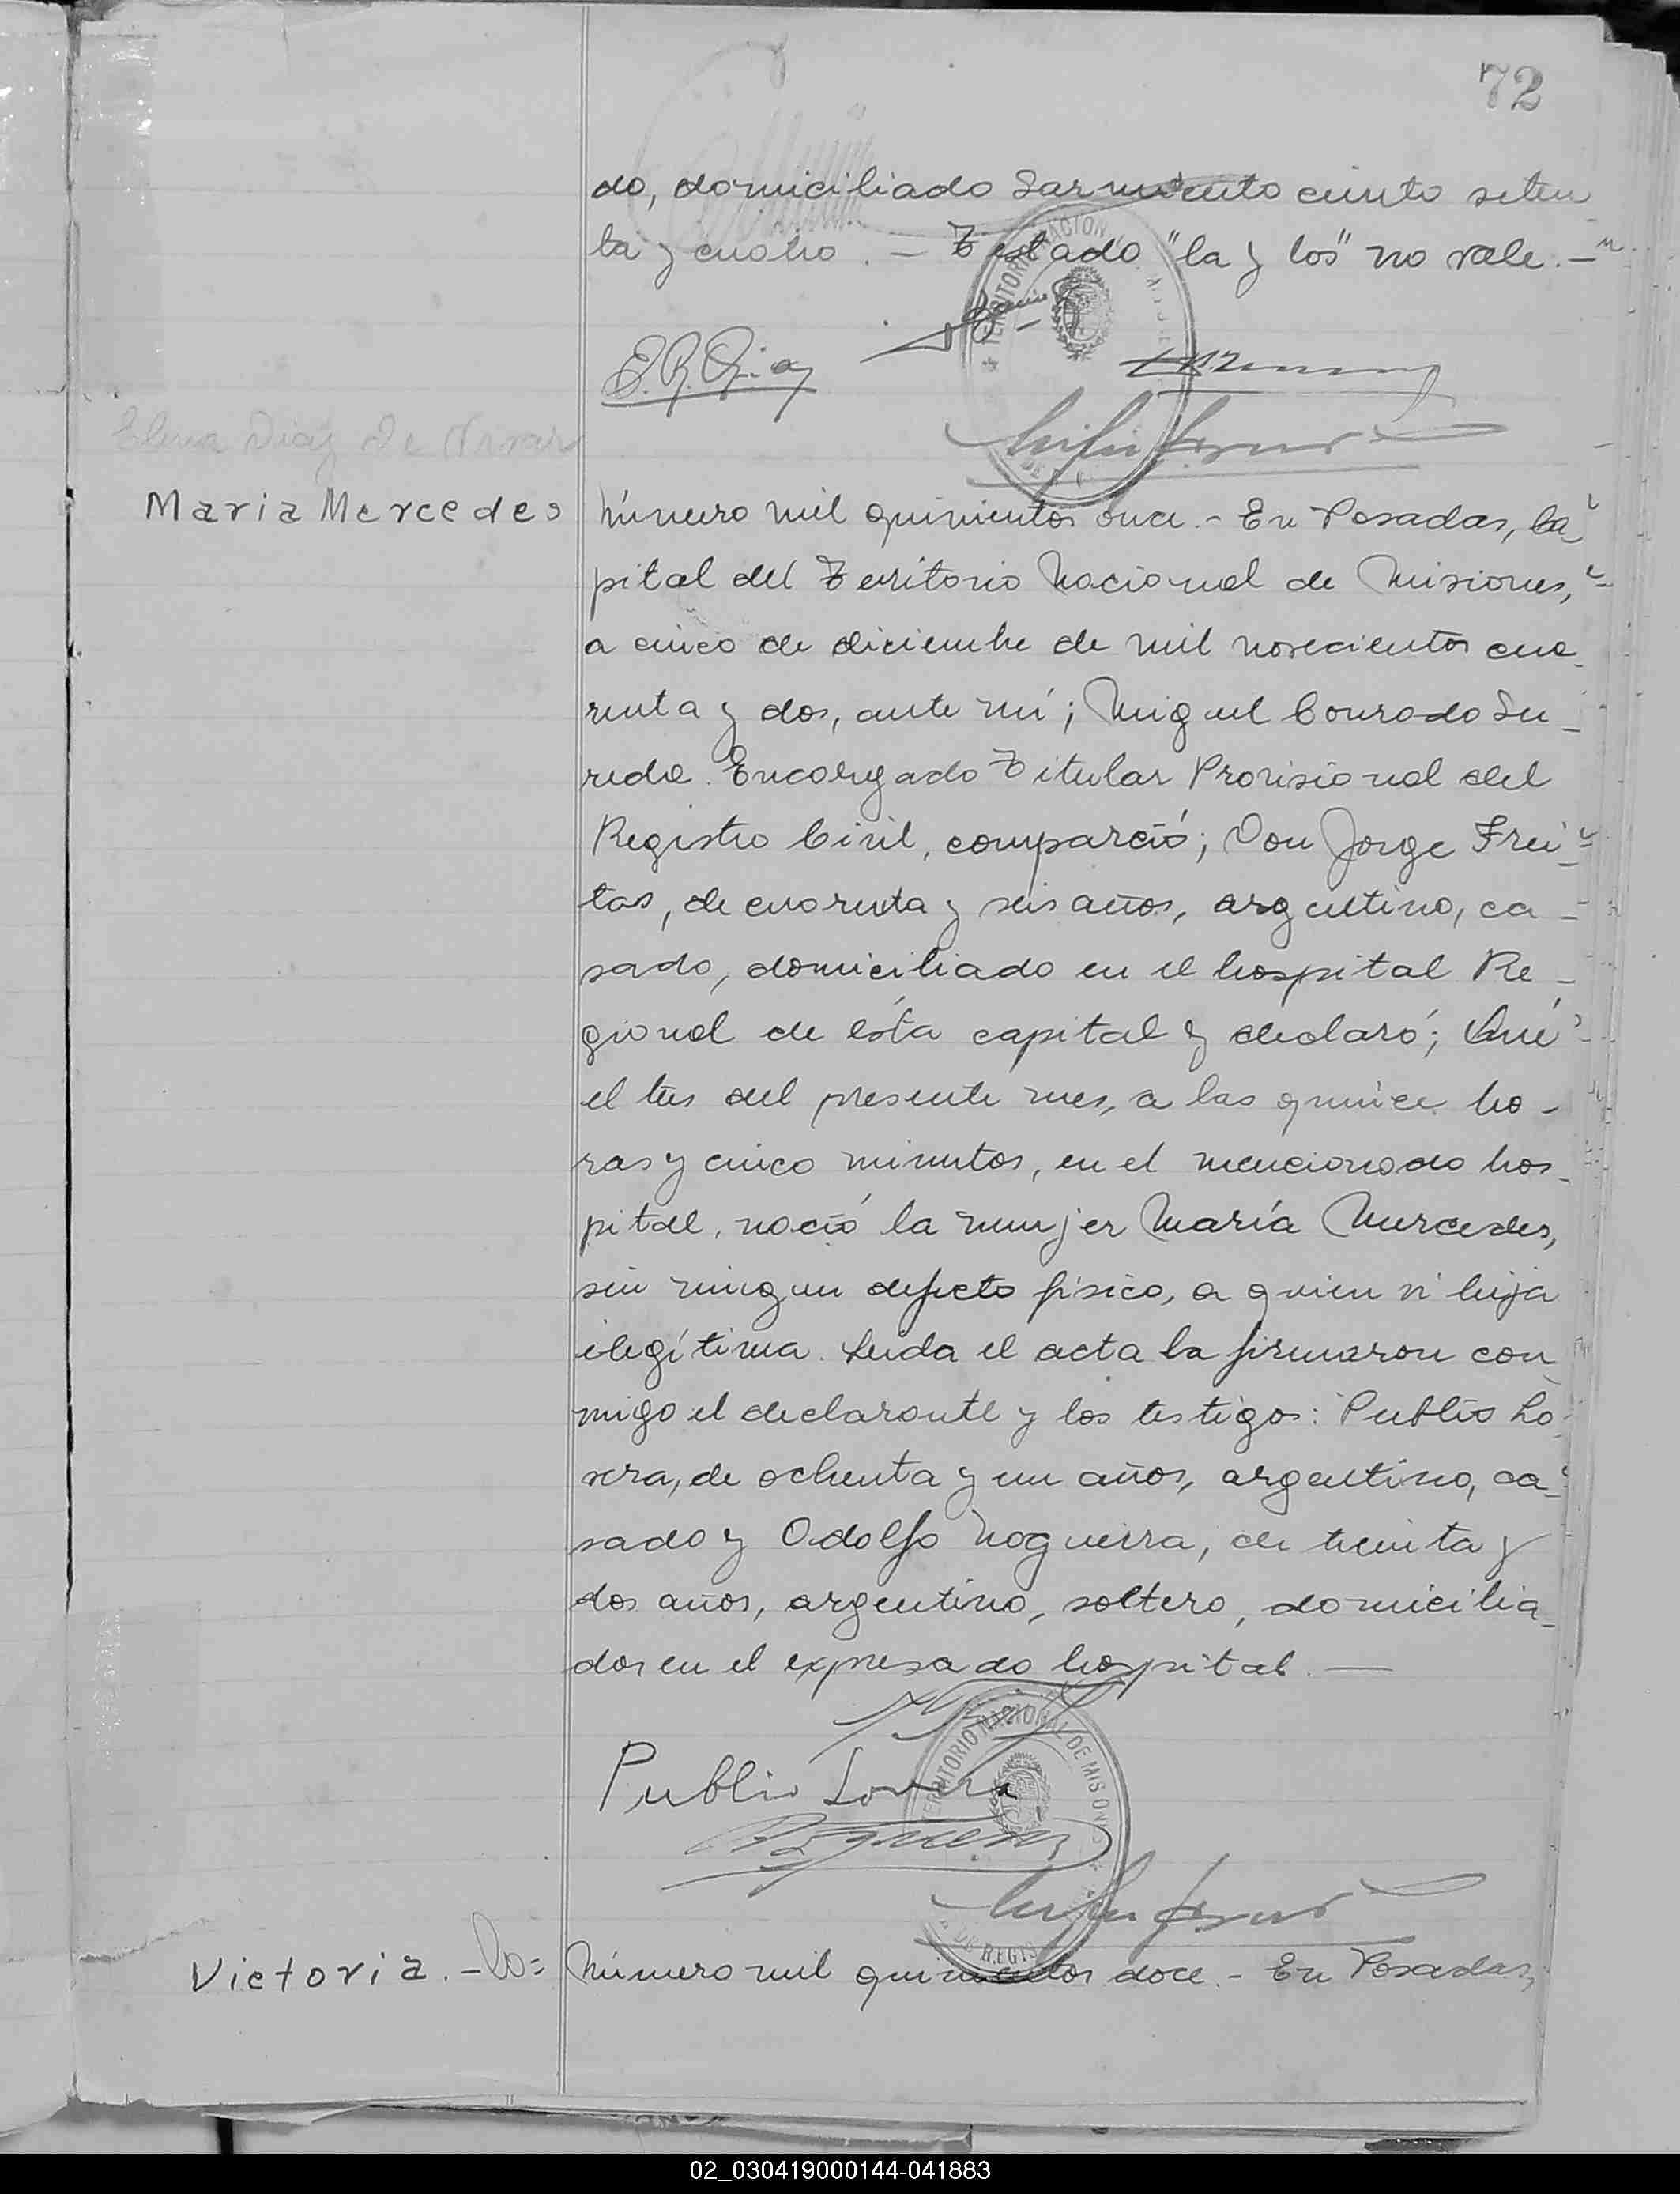 72
do, domiciliado Sarmiento ciento seten
ta y cuatro. - Testado "la y los" no vale. -
Elena Diaz de
Maria Mercedes
Número mil quinientos once. - En Posadas, Ca-
pital del Territorio Nacional de Misiones,
a cinco de diciembre de mil novecientos cua-
renta y dos, ante mí; Miguel Conrado Su-
reda. Encargado Titular Provisional del
Registro Civil, compareció; Don Jorge Frei-
tas, de cuarenta y seis años, argentino, ca-
sado, domiciliado en el hospital Re-
gional de ésta capital y declaró; Qué
el tres del presente mes, a las quince ho-
ras y cinco minutos, en el mencionado hos-
pital, nació la mujer María Mercedes,
sin ningun defecto físico, a quien ví hija
ilegítima. Leida el acta la firmaron con
migo el declarante y los testigos: Publio Lo-
vera, de ochenta y un años, argentino, ca-
sado y Odolfo Noguera, de treinta y
dos años, argentino, soltero, domicilia-
dos en el expresado hospital. —
TERRITORIO NACIONAL DE MISIONES
Publio Lovera
Victoria. -
Número mil quinientos doce. - En Posadas,
02_030419000144-041883